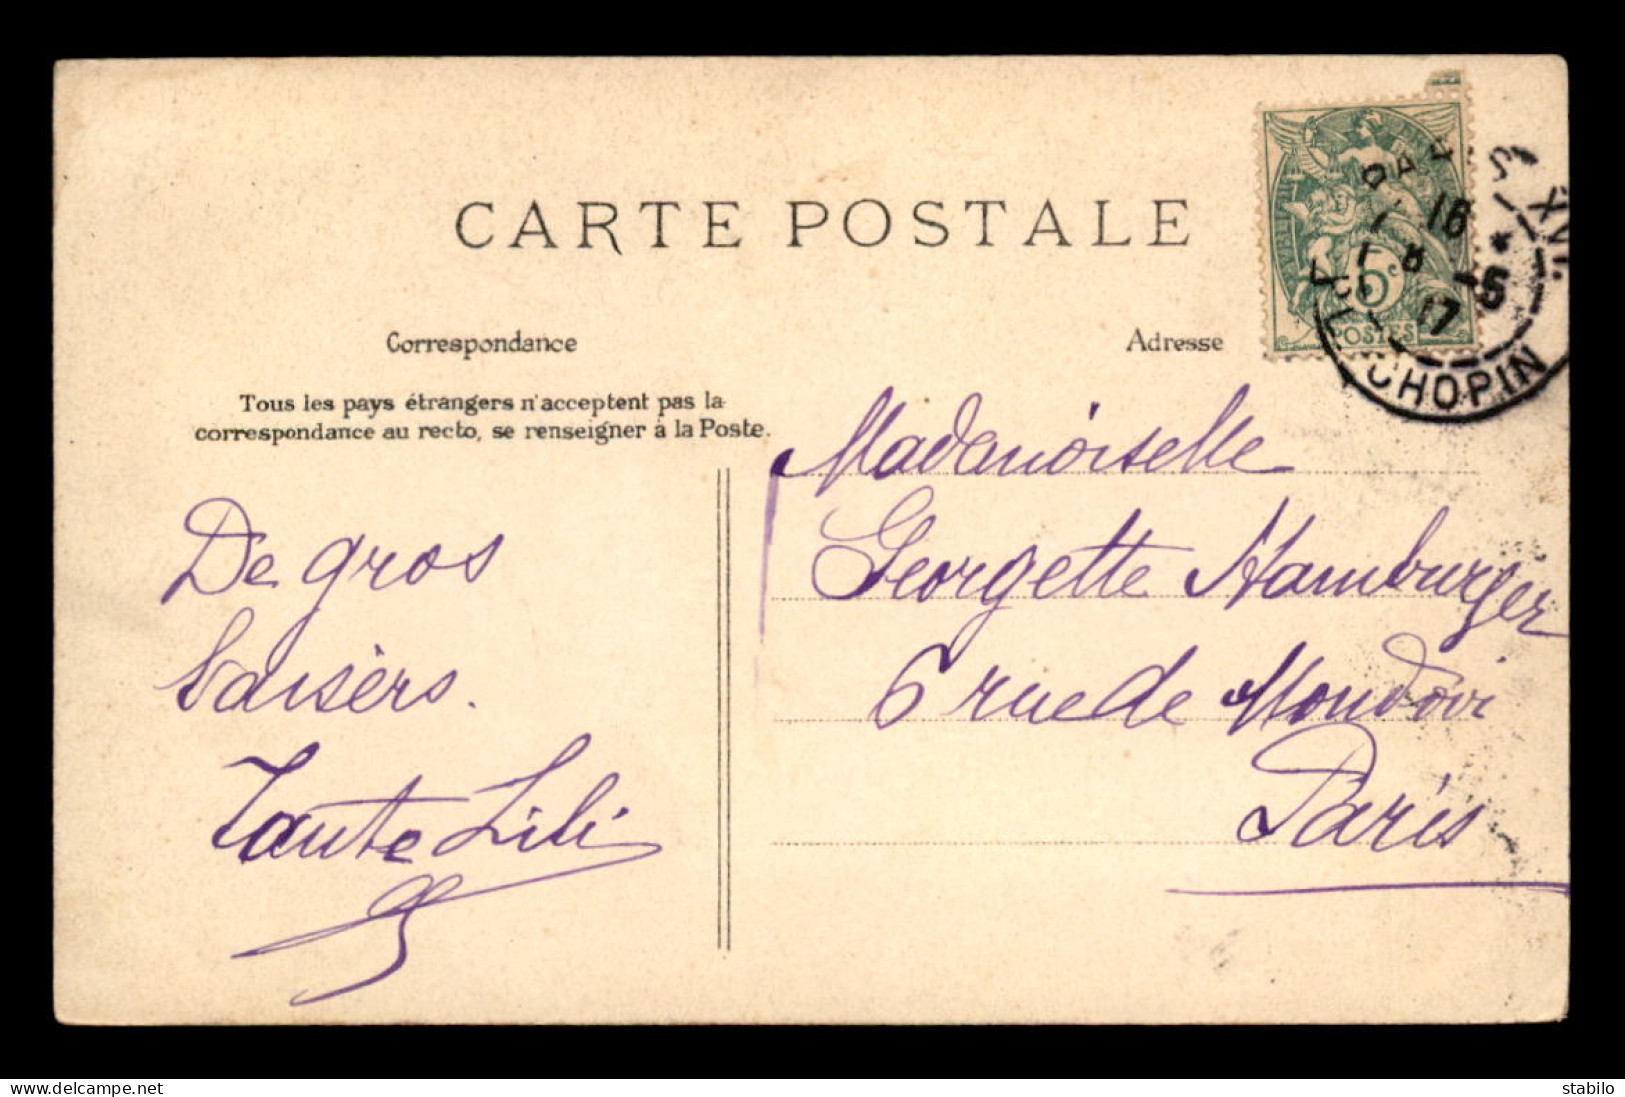 CARTE POSTALE
Correspondance
Tous les pays étrangers n'acceptent pas la
correspondance au recto, se renseigner à la Poste.
De gros
baisèrs.
Tante Lili
Adresse
Mademoiselle
Georgette Hamburger
6 rue de Mondovi
Paris
5c
POSTES
PARIS XVI
16
8 -5
17
CHOPIN
Delcampe.net
stabilo